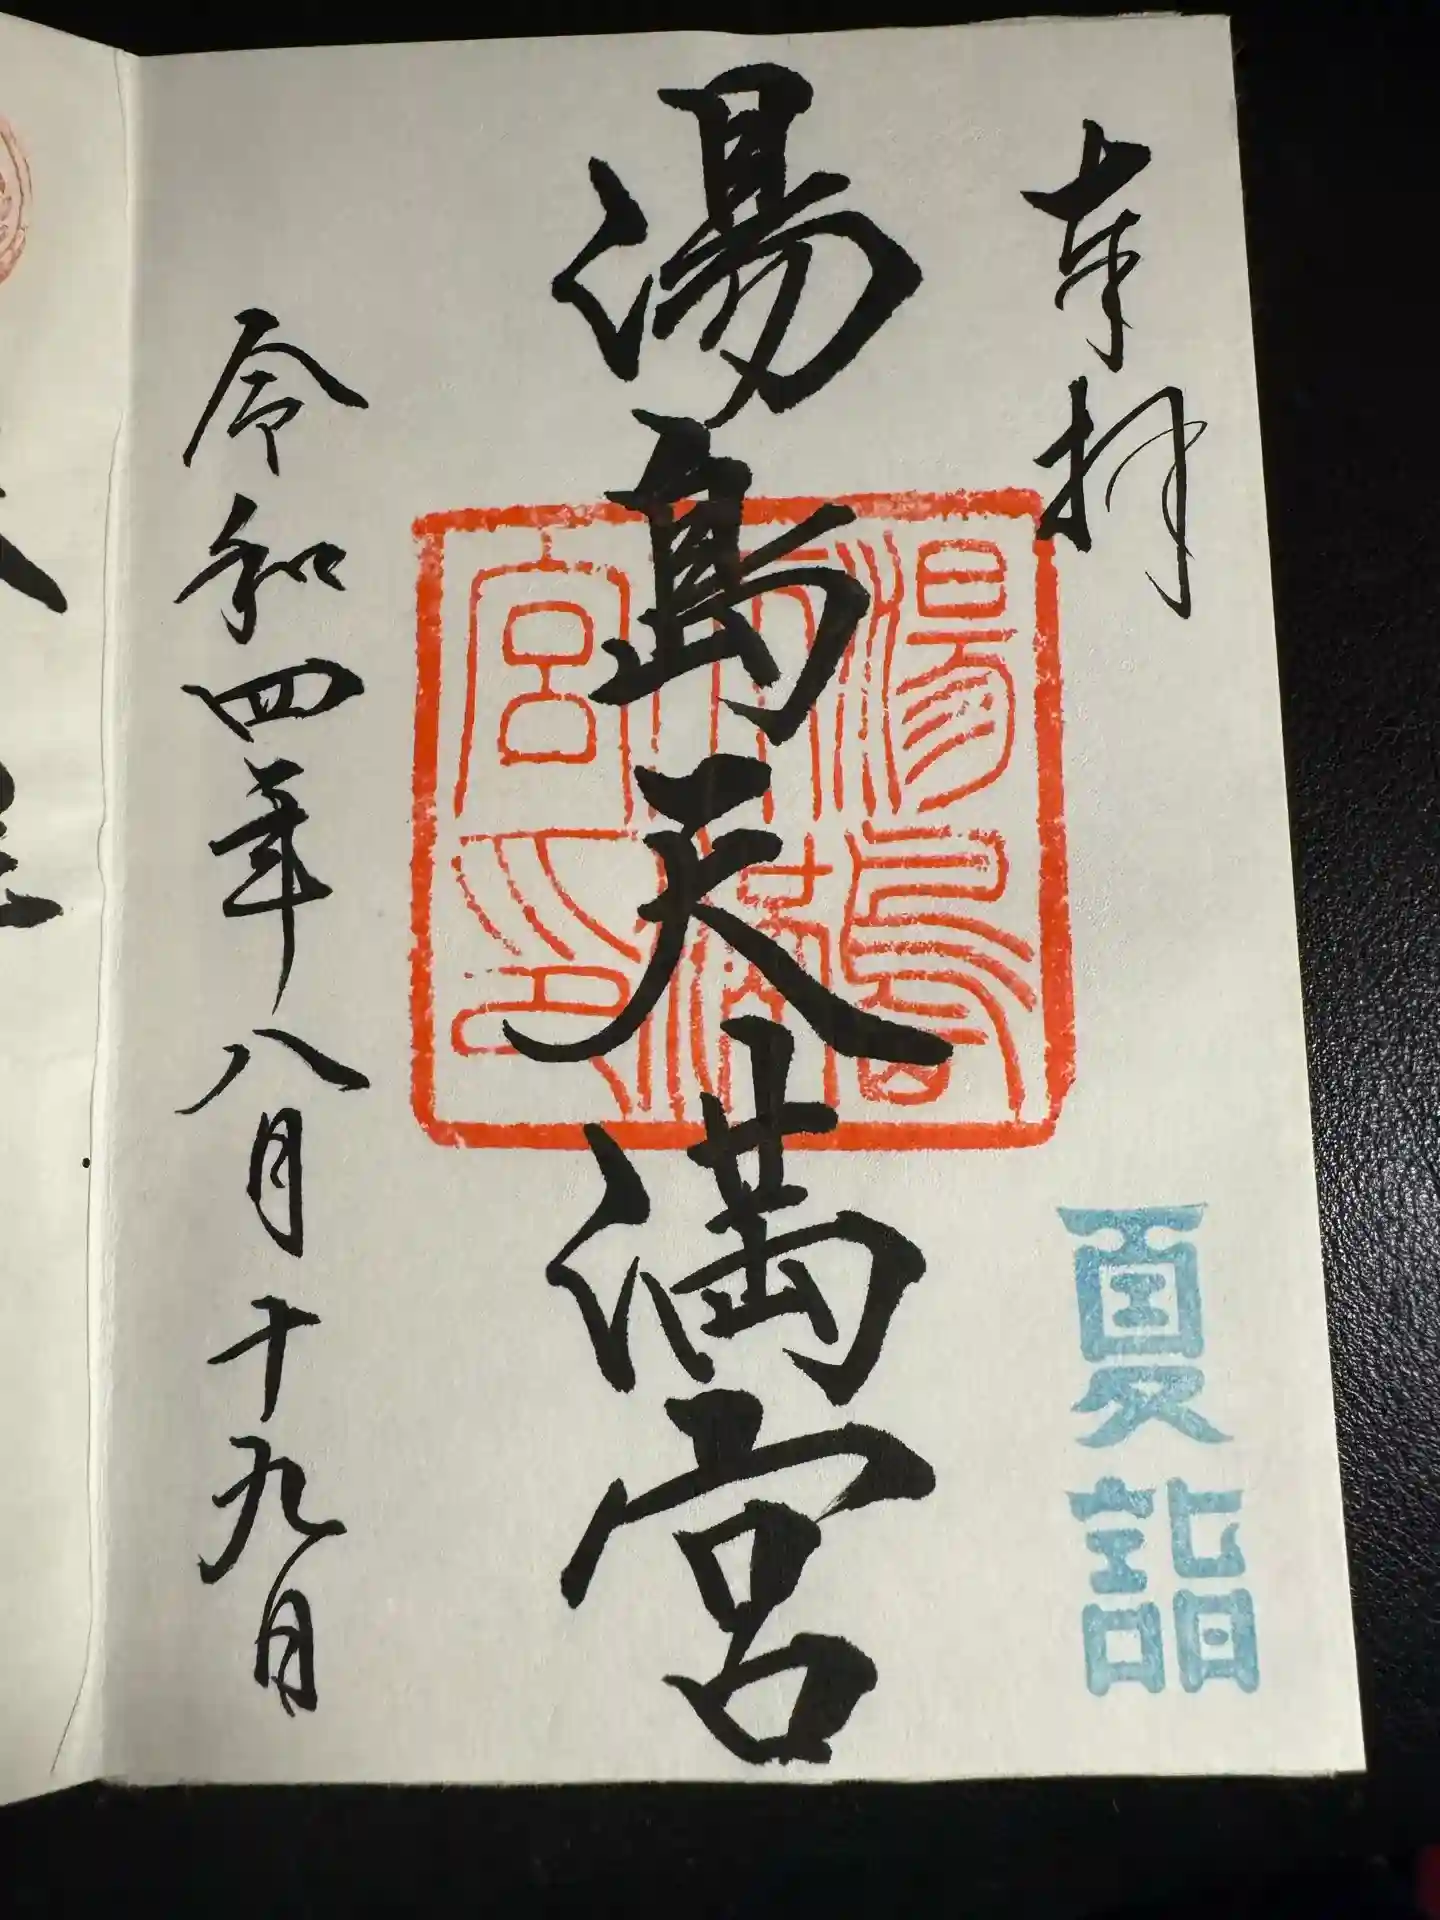 奉拝
夏詣
湯島天満宮
湯島天満宮印
令和四年八月十九日